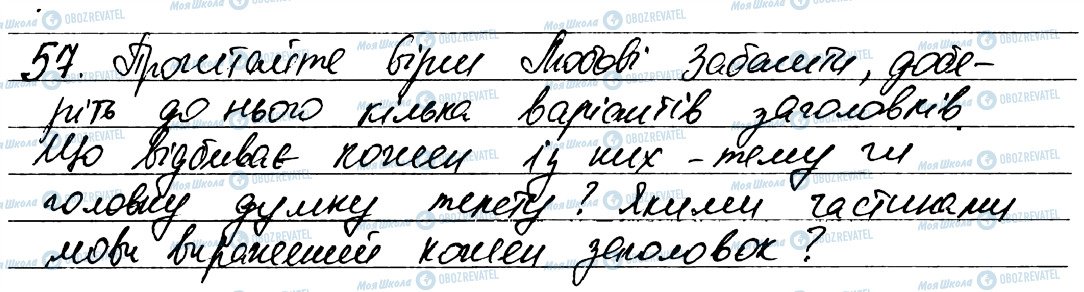 57. Прочитайте вірш Любові Забашти, добе-
ріть до нього кілька варіантів заголовків.
Що відбиває кожен із них - тему чи
головну думку тексту? Якими частинами
мови виражений кожен заголовок?